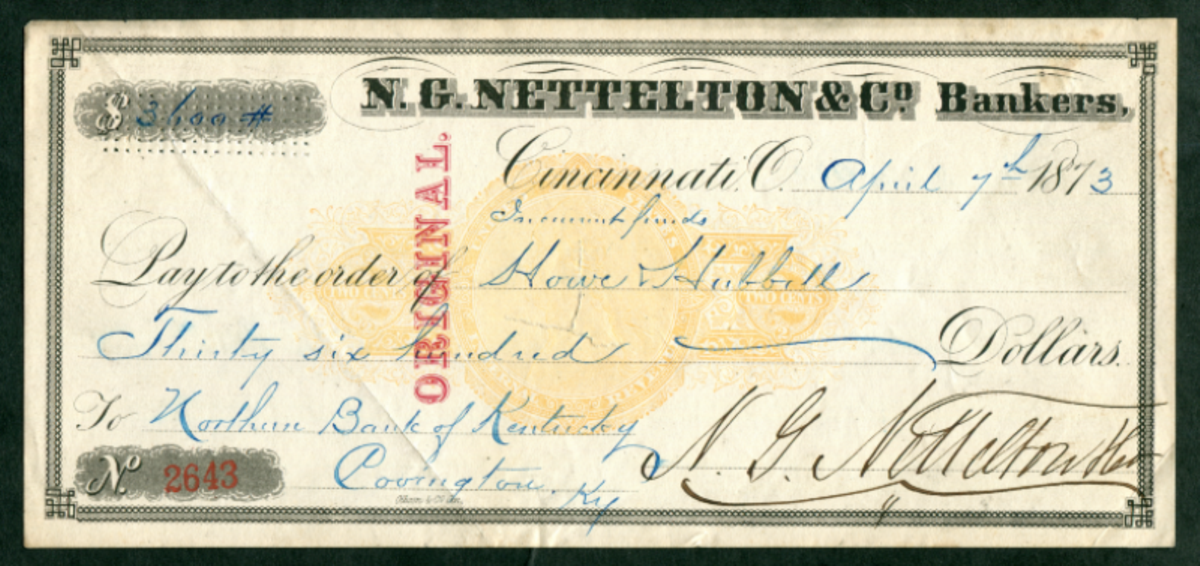 N. G. NETTELTON & CO. Bankers,
$ 3600 #
ORIGINAL.
Cincinnati, O. April 7th 1873
In current funds
Pay to the order of Howe & Hubbell
Thirty six hundred Dollars.
TWO CENTS TWO CENTS
To Northern Bank of Kentucky
Covington, Ky
No. 2643
N. G. Nettelton & Co